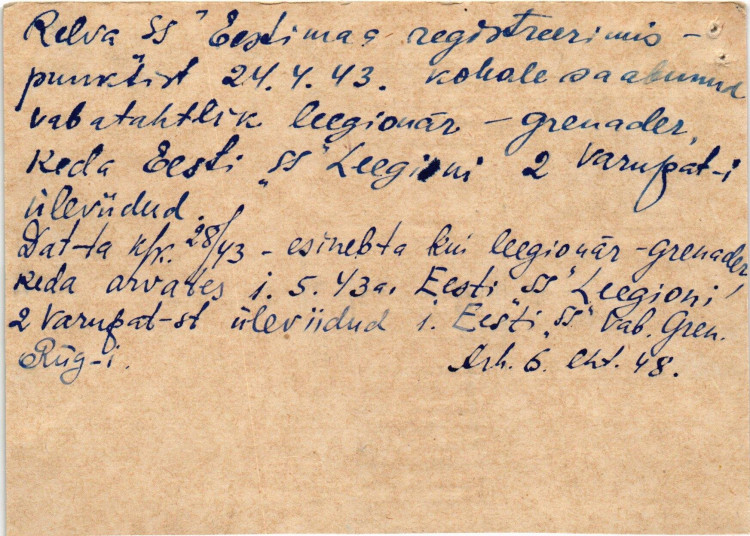 Relva SS" Eestimaa registreerimis-
punktist 24.4.43. kohale saabunud
vabatahtlik leegionär-grenader,
keda Eesti „SS" Leegioni 2 Varupat-i
üleviidud.
Dat-ta 28/43 - esinebta kui leegionär-grenader,
keda arvates 1. 5. 43a. Eesti „SS" Leegioni
2 Varupat-st üleviidud 1. Eesti „SS" Vab. Gren.
Rüg-i. Arh. 6. okt. 48.